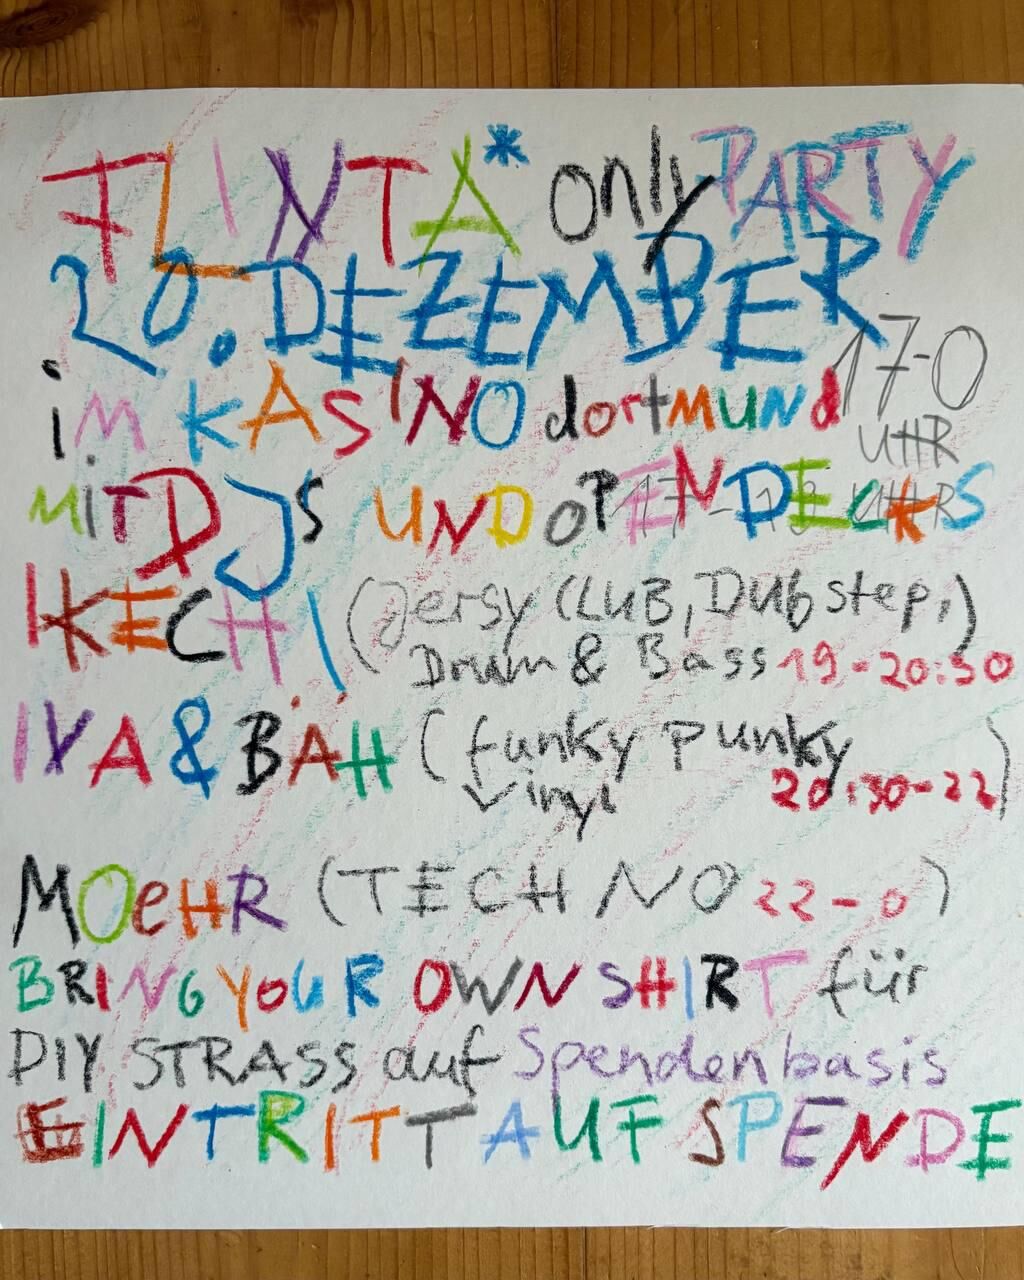 FLINTA* only PARTY
20. DEZEMBER
im KASINO dortmund 17-0
UHR
MiT DJS UND OPEN DECKS
IKECHI (Jersy CLUB, Dubstep,)
Drum & Bass 19-20:30
IVA & BÄH (funky punky
Vinyl 20:30-22)
MOeHR (TECHNO 22-0)
BRING YOUR OWN SHIRT für
DIY STRASS auf Spendenbasis
EINTRITT AUF SPENDE